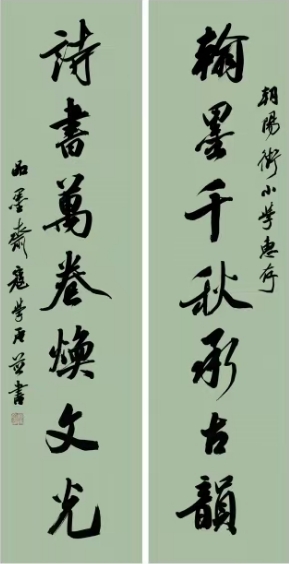 朝陽街小學惠存
翰墨千秋承古韻
詩書萬卷煥文光
品墨齋寇學書